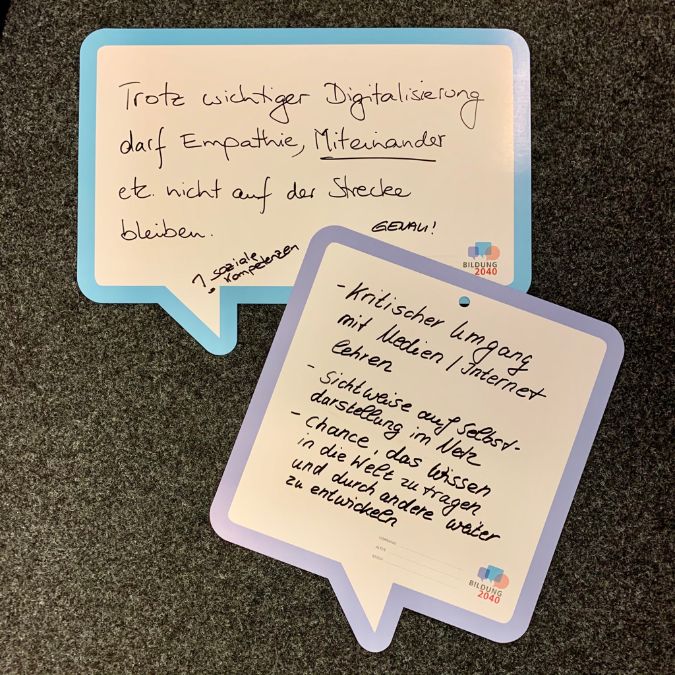 Trotz wichtiger Digitalisierung
darf Empathie, Miteinander
etc. nicht auf der Strecke
bleiben.
GENAU!
soziale
Kompetenzen
BILDUNG
2040
- Kritischer Umgang
mit Medien / Internet
lehren
- Sichtweise auf Selbst-
darstellung im Netz
- Chance, das Wissen
in die Welt zu tragen
und durch andere weiter
zu entwickeln
BILDUNG
2040